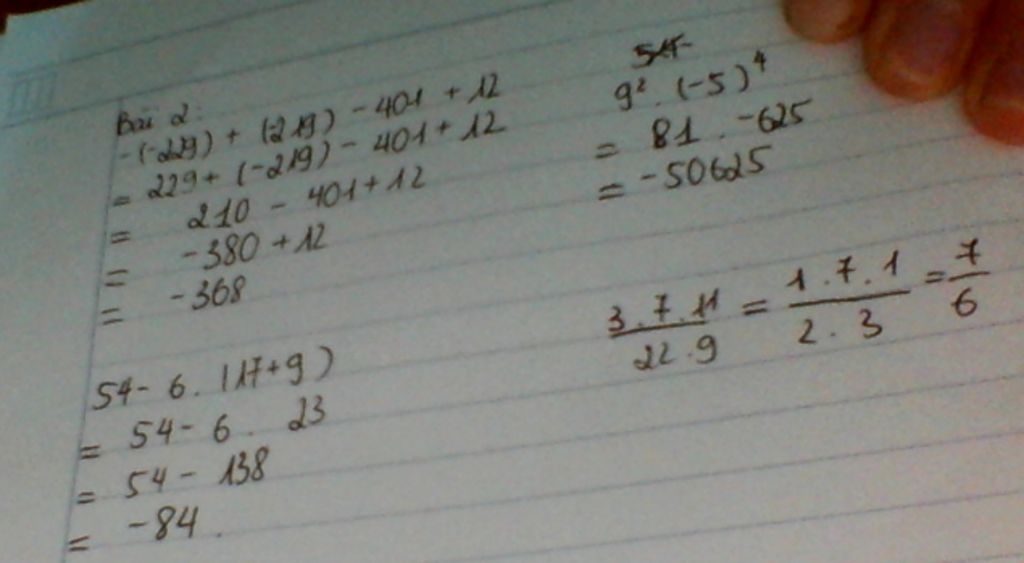 Bài 2:
-(-229) + (219) - 401 + 12
= 229 + (-219) - 401 + 12
= 210 - 401 + 12
= -380 + 12
= -368
54 - 6 . (17+9)
= 54 - 6 . 23
= 54 - 138
= -84.
9² . (-5)⁴
= 81 . -625
= -50625
3 . 7 . 11 / 22 . 9 = 1 . 7 . 1 / 2 . 3 = 7 / 6